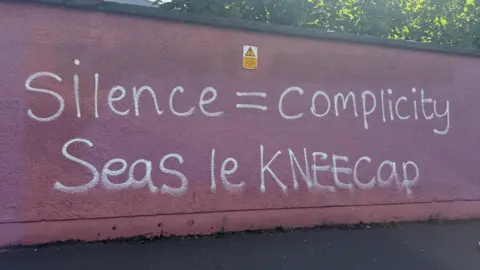 Silence = complicity
Seas le KNEECAP